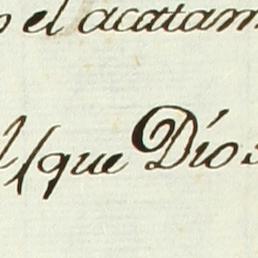 o el acatam
l (que Dios